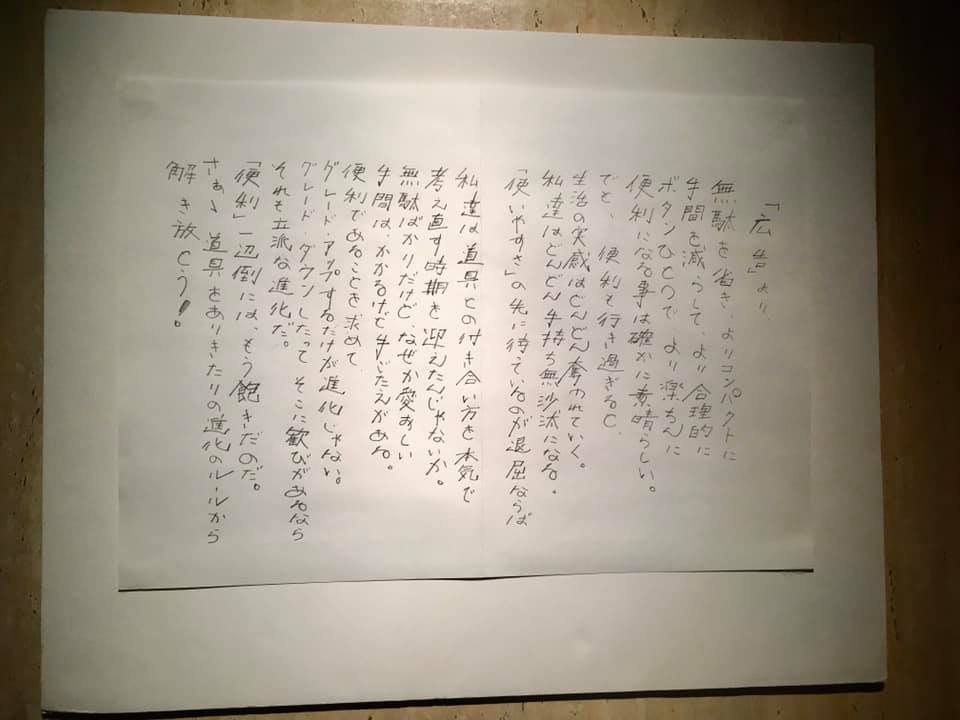 「広告」より
無駄を省き、よりコンパクトに
手間を減らして、より合理的に
ボタンひとつで、より楽ちんに
便利になる事は確かに素晴らしい。
でも、便利も行き過ぎると、
生活の実感はどんどん奪われていく。
私達はどんどん手持ち無沙汰になる。
「使いやすさ」の先に待っているのが退屈ならば
私達は道具との付き合い方を本気で
考え直す時期を迎えたんじゃないか。
無駄ばかりだけど、なぜか愛おしい
手間は、かかるけど手ごたえがある。
便利であることを求めて
グレード・アップするだけが進化じゃない。
グレード・ダウンしたって そこに歓びがあるなら
それも立派な進化だ。
「便利」一辺倒には、もう飽きたのだ。
さぁ、道具をありきたりの進化のルールから
解き放とう!